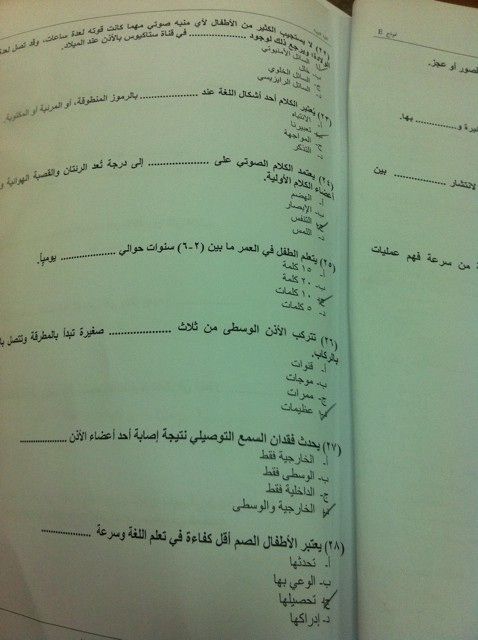 نموذج E
(٢٢) لا يستجيب الكثير من الأطفال لأي منبه صوتي مهما كانت قوته لعدة ساعات، وقد تصل لعدة
ويرجع ذلك لوجود .................... في قناة ستاكيوس بالأذن عند الميلاد.
أ- السائل الأمنيوتي
ب- خلل
ج- السائل الخلوي
د- السائل
(٢٣) يعتبر الكلام أحد أشكال اللغة عند .................... بالرموز المنطوقة، أو المرئية أو المكتوبة.
أ- الانتباه
ب- تعبيرنا
ج- المواجهة
د- التذكر
(٢٤) يعتمد الكلام الصوتي على .................... إلى درجة تُعد الرئتان والقصبة الهوائية و
أعضاء الكلام الأولية.
أ- الهضم
ب- الإبصار
ج- التنفس
د- اللمس
(٢٥) يتعلم الطفل في العمر ما بين (٢-٦) سنوات حوالي .................... يومياً.
أ- ١٥ كلمة
ب- ٢٠ كلمة
ج- ١٠ كلمات
د- ٥ كلمات
(٢٦) تتركب الأذن الوسطى من ثلاث .................... صغيرة تبدأ بالمطرقة وتتصل با
بالركاب.
أ- قنوات
ب- موجات
ج- ممرات
د- عظيمات
(٢٧) يحدث فقدان السمع التوصيلي نتيجة إصابة أحد أعضاء الأذن ....................
أ- الخارجية فقط
ب- الوسطى فقط
ج- الداخلية فقط
د- الخارجية والوسطى
(٢٨) يعتبر الأطفال الصم أقل كفاءة في تعلم اللغة وسرعة ....................
أ- تحدثها
ب- الوعي بها
ج- تحصيلها
د- إدراكها
قصور أو عجز.
يرة و.............. بها.
لانتشار .............. بين
ة من سرعة فهم عمليات